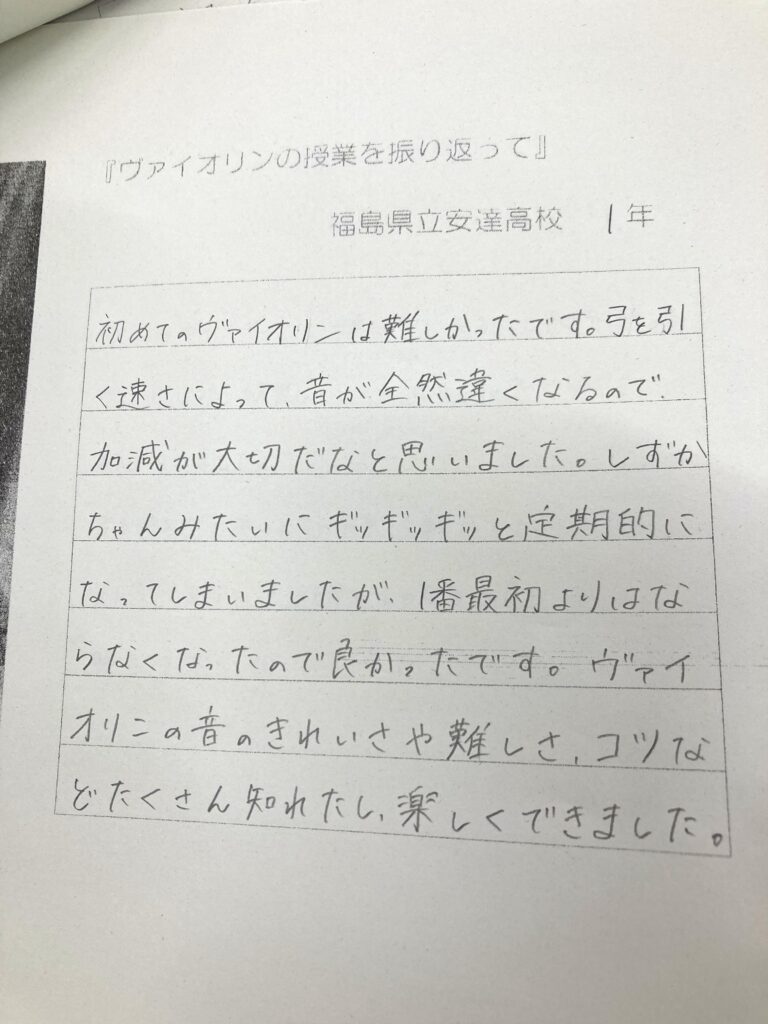 『ヴァイオリンの授業を振り返って』
福島県立安達高校 1年
初めてのヴァイオリンは難しかったです。弓を引
く速さによって、音が全然違くなるので、
加減が大切だなと思いました。しずか
ちゃんみたいにギッギッギッと定期的に
なってしまいましたが、1番最初よりはな
らなくなったので良かったです。ヴァイ
オリンの音のきれいさや難しさ、コツな
どたくさん知れたし、楽しくできました。